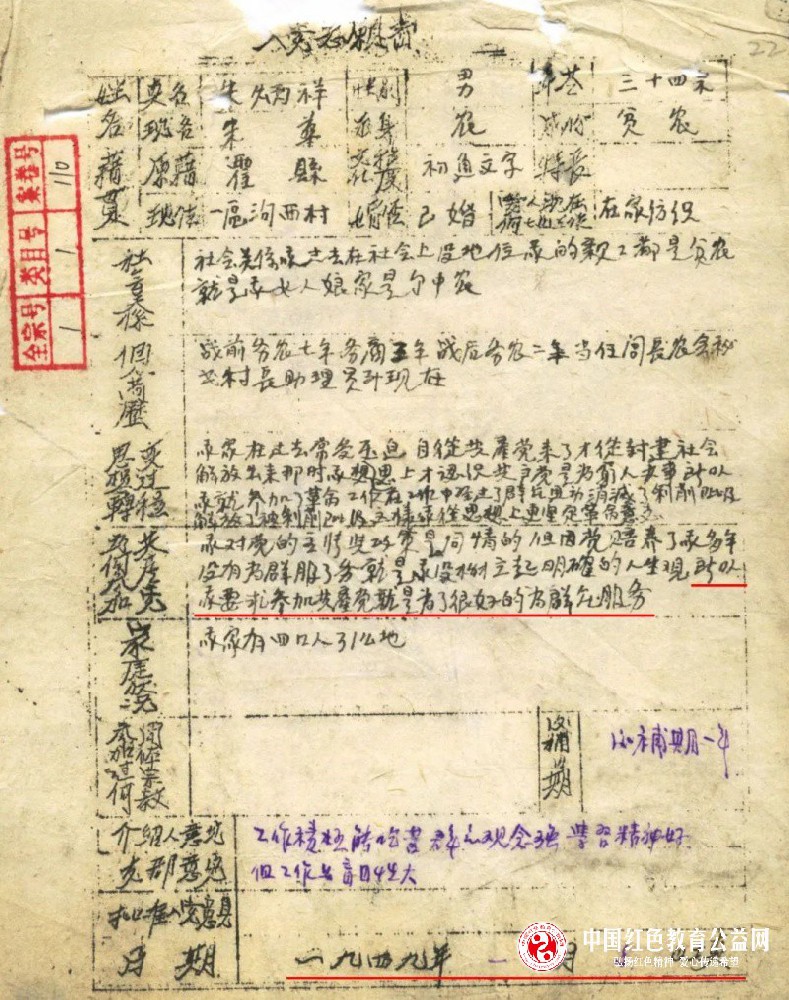 入党志愿书
22
姓名 真名 朱炳祥 性别 男 年令 三十四岁
现名 朱 出身 农 成份 贫农
籍贯 原籍 霍县 文化程度 初通文字 特长
现住 一区沟西村 婚否 已婚 在家纺织
社会关系
社会关系我过去在社会上没地位我的亲工都是贫农
就是我女人娘家是个中农
个人简历
战前务农七年务商五年战后务农二年当任闾长农会秘
书村长助理员到现在
思想转变过程
我家在过去常受压迫自从共产党来了才从封建社会
解放出来那时我思想上才认识共产党是为穷人办事所以
我就参加了革命工作在工作中经过了群众运动消灭了剥削阶级
解放了被剥削阶级这样我从思想上更坚定革命意志
为何参加共产党
我对党的主张政策是同情的但因党培养了我多年
没有为群服了务就是我没树立起明确的人生观所以
我要求参加共产党就是为了很好的为群众服务
家庭状况
我家有四口人 地
参加过何团体宗教
候补期
候补期一年
介绍人意见
支部意见
工作积极能吃苦群众观念强学习精神好
但工作上盲目性大
批准入党意见
日期 一九四九年 一 月
全宗号 1
类目号 1
案卷号 110
中国红色教育公益网
弘扬红色精神 爱心传递希望